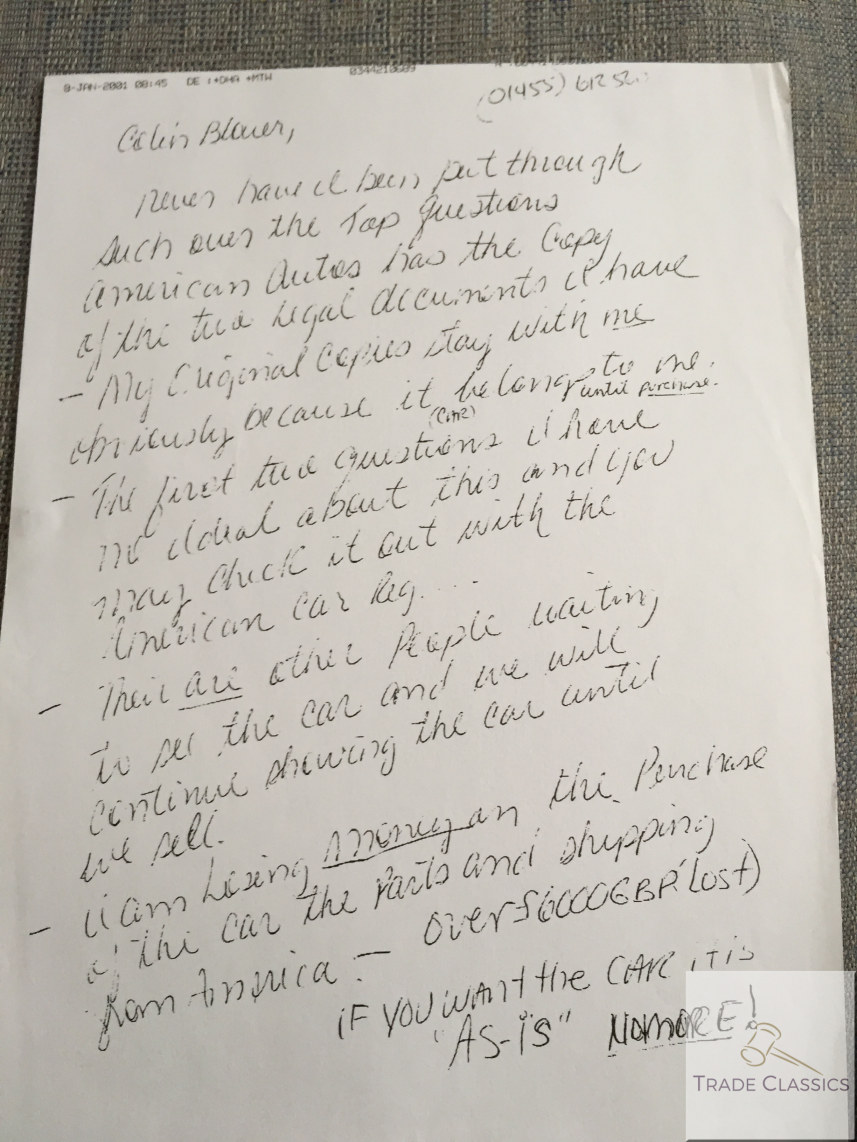 8-JAN-2001 08:45 DE :+DHA +MTW 0344210689
(01455) 612 52
Colin Blower,
Never have I been put through
such over the Top questions
American Autos has the Copy
of the two Legal documents I have
- My Original Copies stay with me
obviously because it belongs to me.
until purchase.
(CAR)
- The first two questions I have
no ideal about this and you
may check it out with the
American Car Reg....
- Their are other People waiting
to see the car and we will
continue showing the car until
we sell.
- I am Losing money on the Purchase
of the car the Parts and shipping
from America - over £6000GBP (Lost)
IF YOU WANT the CAR IT is
"AS-IS" NO MORE!
TRADE CLASSICS